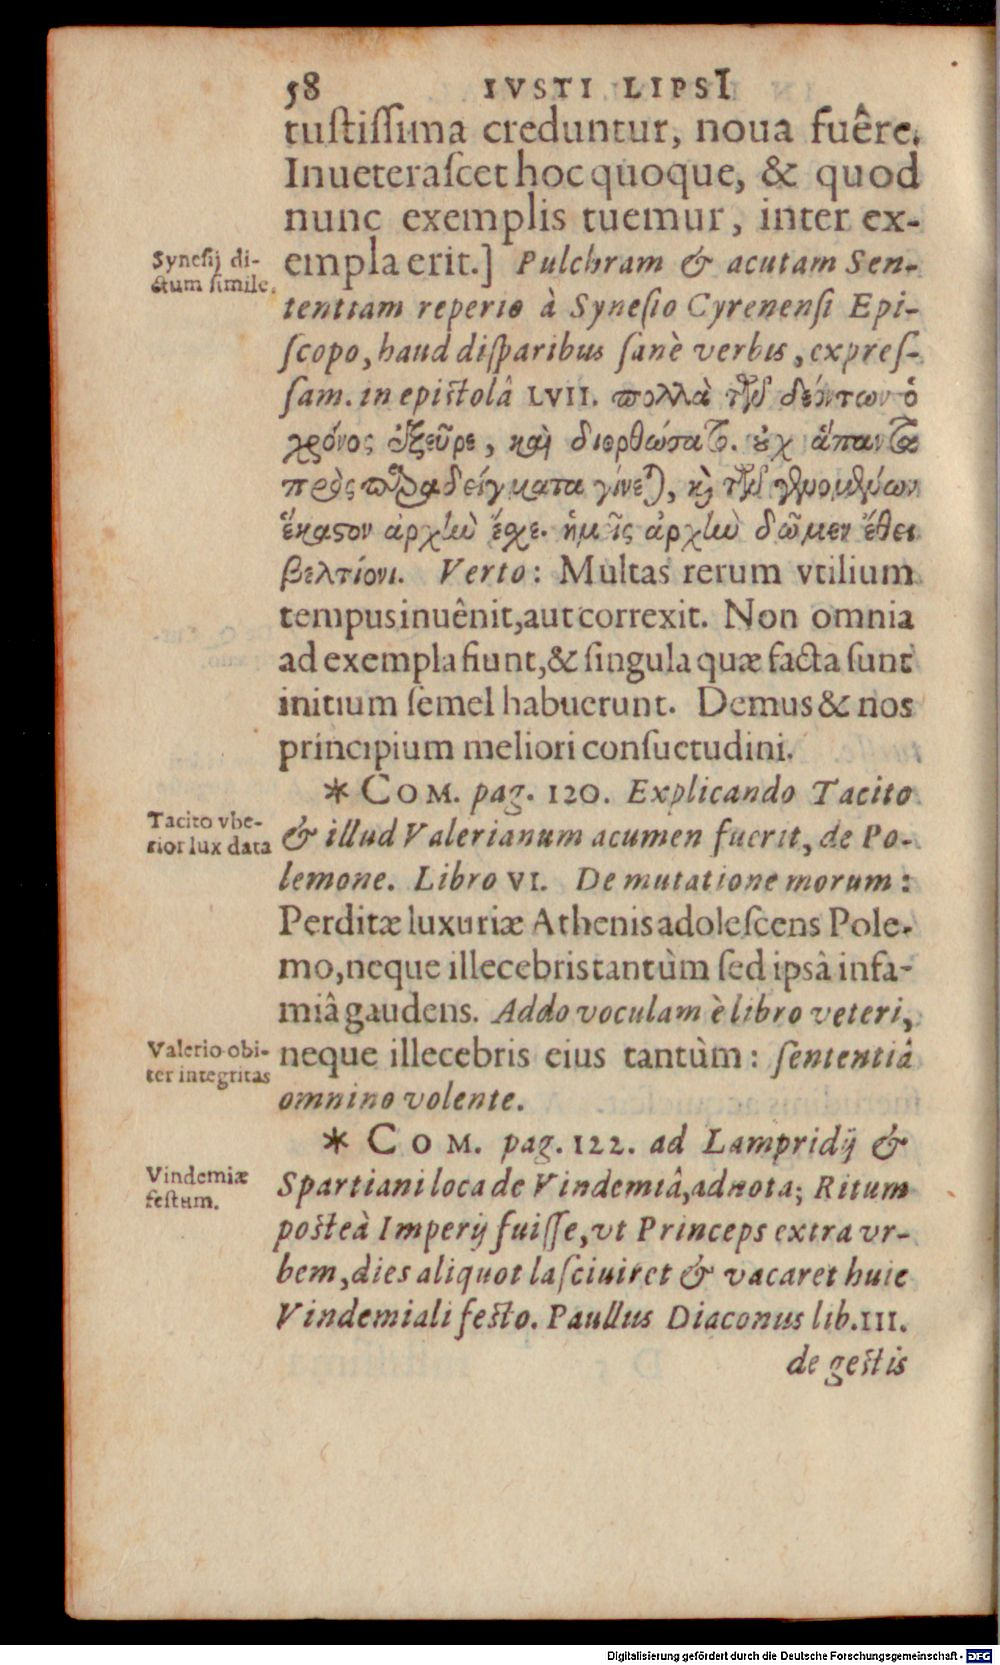 58 IVSTI LIPSI
tustissima creduntur, noua fuêre.
Inueterascet hoc quoque, & quod
nunc exemplis tuemur, inter ex-
Synesij di-
ctum simile.
empla erit.] Pulchram & acutam Sen-
tentiam reperio à Synesio Cyrenensi Epi-
scopo, haud disparibus sanè verbis, expres-
sam. in epistolâ LVII. πολλὰ τῶν δεόντων ὁ
χρόνος ἐξεῦρε, καὶ διορθώσατο. οὐχ ἅπαντα
πρὸς παραδείγματα γίνεται, καὶ τῶν γενομένων
ἕκαστον ἀρχὴν ἔσχε. ἡμεῖς ἀρχὴν δῶμεν ἔθει
βελτίονι. Verto: Multas rerum vtilium
tempus inuênit, aut correxit. Non omnia
ad exempla fiunt, & singula quæ facta sunt
initium semel habuerunt. Demus & nos
principium meliori consuetudini.
* COM. pag. 120. Explicando Tacito
Tacito vbe-
rior lux data
& illud Valerianum acumen fuerit, de Po-
lemone. Libro VI. De mutatione morum:
Perditæ luxuriæ Athenis adolescens Pole-
mo, neque illecebris tantùm sed ipsâ infa-
miâ gaudens. Addo voculam è libro veteri,
Valerio obi-
ter integritas
neque illecebris eius tantùm: sententiâ
omnino volente.
* COM. pag. 122. ad Lampridij &
Vindemiæ
festum.
Spartiani loca de Vindemiâ, adnota; Ritum
posteà Imperij fuisse, vt Princeps extra vr-
bem, dies aliquot lasciuiret & vacaret huic
Vindemiali festo. Paullus Diaconus lib. III.
de gestis
Digitalisierung gefördert durch die Deutsche Forschungsgemeinschaft - DFG